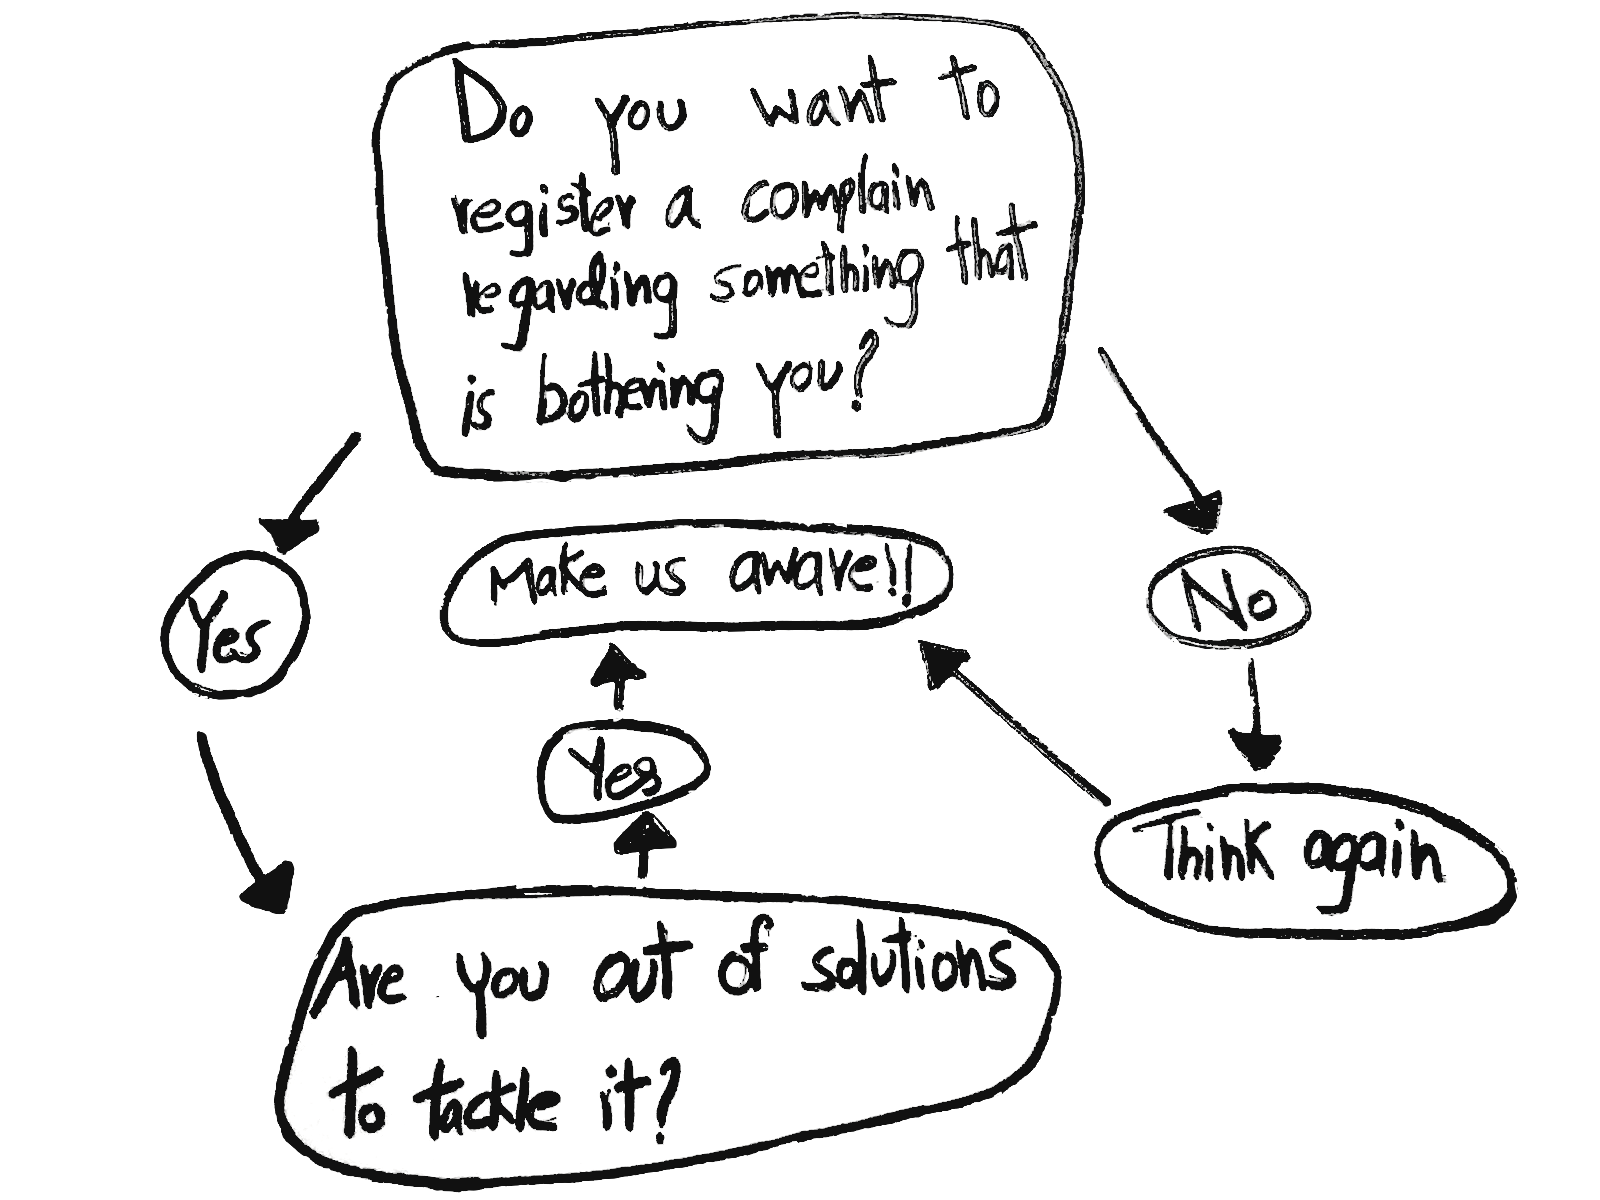 Do you want to
register a complain
regarding something that
is bothering you?
Make us aware!!
Yes
No
Yes
Think again
Are you out of solutions
to tackle it?